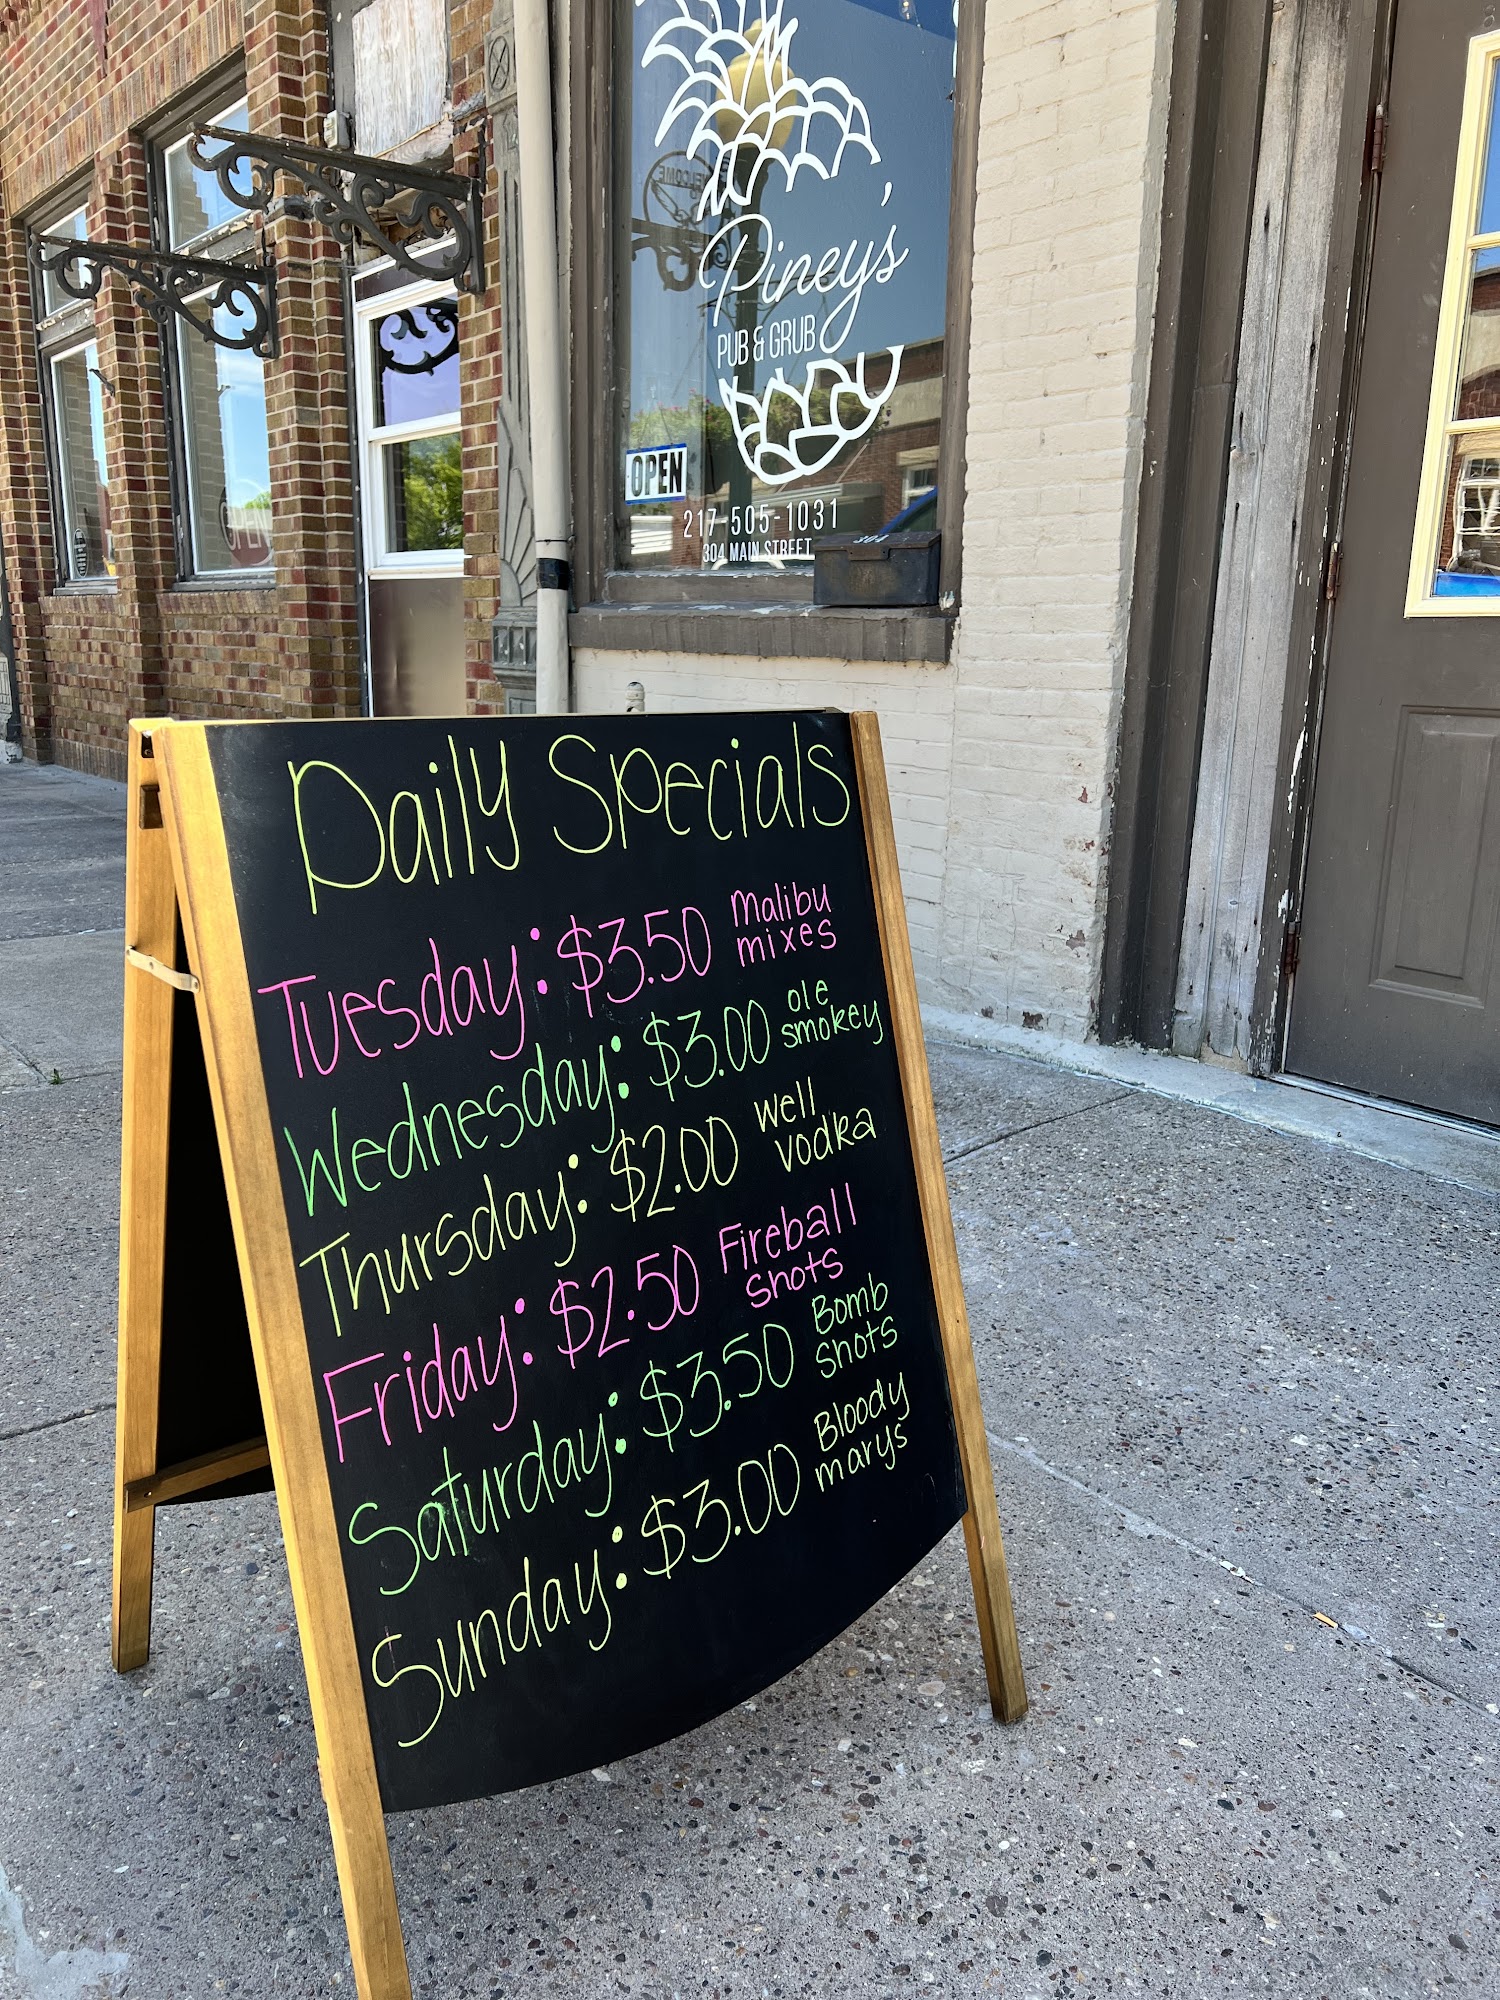 Piney's
PUB & GRUB
OPEN
217-505-1031
304 MAIN STREET
304
WELCOME
OPEN
Daily Specials
Tuesday: $3.50 Malibu
mixes
Wednesday: $3.00 ole
smokey
Thursday: $2.00 Well
vodka
Friday: $2.50 Fireball
shots
Saturday: $3.50 Bomb
shots
Sunday: $3.00 Bloody
marys